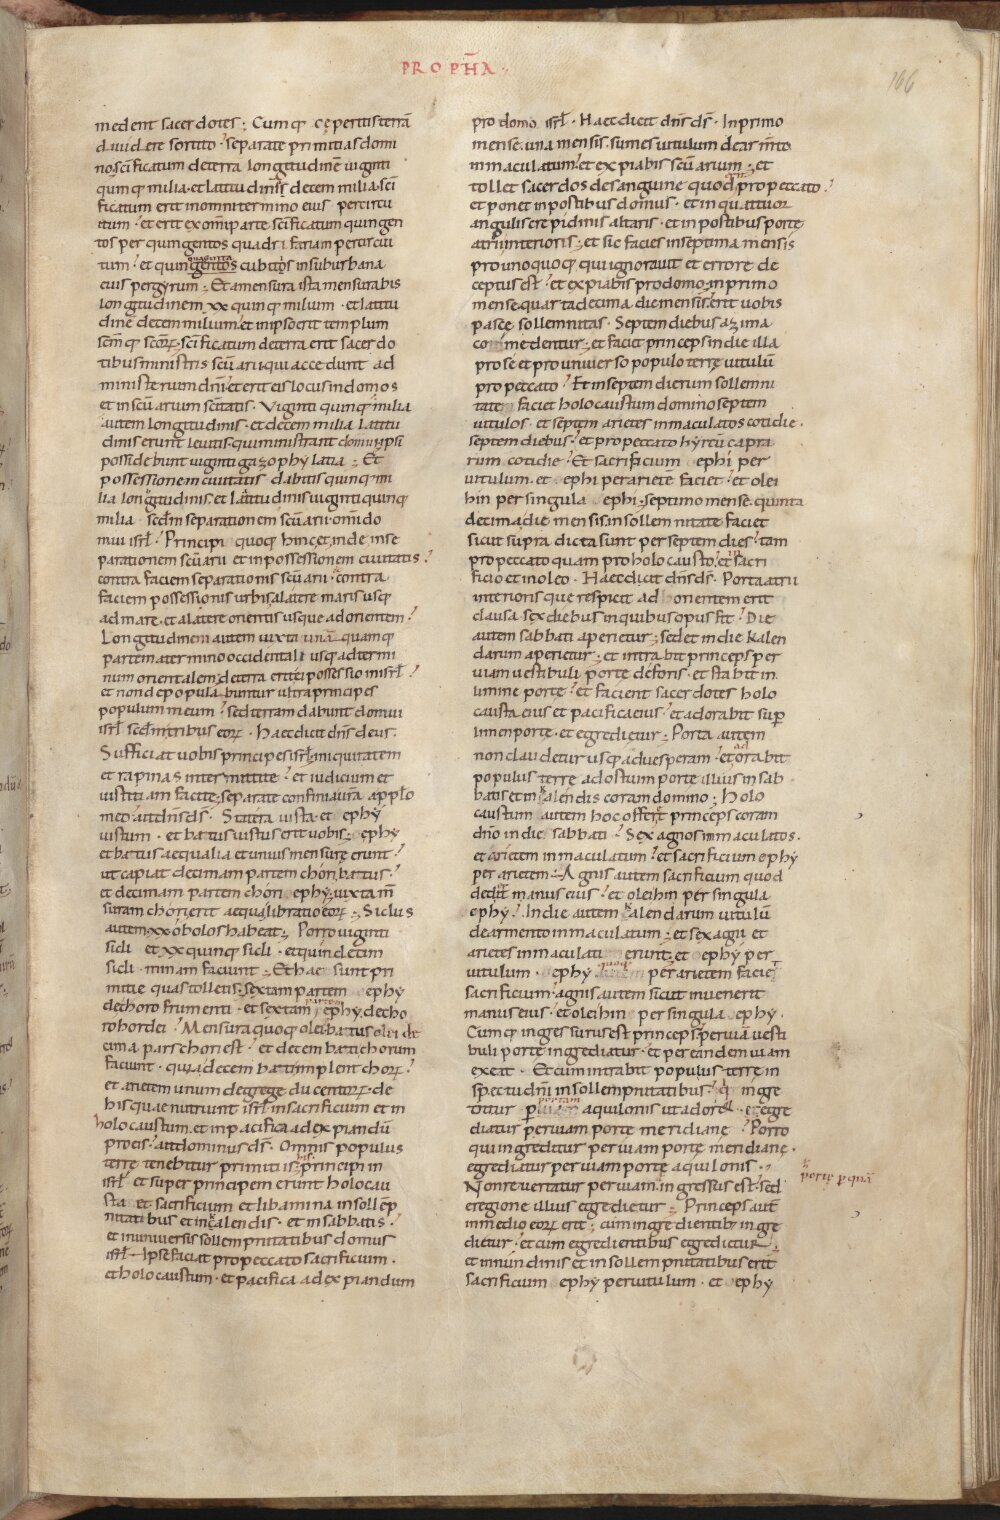 PROPHĀ
166
medent sacerdotes; Cumq; cęperitis terrā
diuidere sortito· separate primitias domi
no· sc̄ificatum deterra longitudinē uiginti
quinq; milia· et latitudinis decem milia· sc̄i
ficatum erit inomni termino eius percircu
itum· et erit ex om̄i parte sc̄ificatum quingen
tos per quingentos quadrifariam percircui
tum· et quinquaginta gentos cubitos insuburbana
eius pergyrum; Et amensura ista mensurabis
longitudinem xx quinq; milium· et latitu
dinē decem milium· et inipso erit templum
sc̄m q; sc̄orꝝ· sc̄ificatum deterra erit sacerdo
tibus ministris sc̄uarii qui accedunt ad
ministerium dn̄i· et erit eis locus indomos
et insc̄uarium sc̄itatis· Viginti quinq; milia
autem longitudinis· et decem milia latitu
dinis erunt leuitis qui ministrant domui· ipsi
possidebunt uiginti gazophylatia; Et
possessionem ciuitatis dabitis quinq; mi
lia longitudinis· et latitudinis uiginti quinq;
milia sc̄dm separationem sc̄uarii· om̄i do
mui isrł· Principi quoq; hinc et inde inse
parationem sc̄uarii et inpossessionem ciuitatis·
contra faciem separationis sc̄uarii· contra
faciem possessionis urbis· alatere maris usq;
ad mare· et alatere orientis usque ad orientem·
Longitudinem autem iuxta unā quamq;
partem atermino occidentali usq; adtermi
num orientalem; deterra erit ei possessio inisrł·
et non depopulabuntur ultra principes
populum meum· sed terram dabunt domui
isrł sc̄dm tribus eorꝝ· Haec dicit dn̄s deus·
Sufficiat uobis principes isrł· iniquitatem
et rapinas intermittite· et iudicium et
iustitiam facite; separate confinia ūra apopło
meo ait dn̄s ds̄· Statera iusta· et ephÿ
iustum· et batus iustus erit uobis; ephÿ
et batus aequalia et unius mensurę erunt·
ut capiat decimam partem chori batus·
et decimam partem chori ephÿ; iuxta m̄
suram chori erit aequa libratio eorꝝ; Siclus
autem xx obolos habeat; Porro uiginti
sicli et xx quinq; sicli· et quindecim
sicli· minam faciunt; Et hae sunt pri
mitie quas tolletis· sextam partem ephÿ
dechoro frumenti· et sextam partem ephÿ, decho
ro hordei· Mensura quoq; olei· batus olei de
cima pars chori est· et decem bati chorum
faciunt· quia decem bati implent chorꝝ·
et arietem unum degrege ducentorꝝ· de
his quae nutriunt isrł· insacrificium et in
holocaustum· et inpacifica adexpiandū
proeis· ait dominus ds̄· Omnis populus
terrę tenebitur primitiis his principi in
isrł· et super principem erunt holocau
sta· et sacrificium et libamina insollēp
nitatibus et inkalendis· et insabbatis·
et inuniuersis sollempnitatibus domus
isrł· Ipse faciat propeccato sacrificium·
et holocaustum· et pacifica adexpiandum
pro domo isrł· Haec dicit dn̄s ds̄· Inprimo
mense· una mensis· sumes uitulum dearm̄to
inmaculatum· et expiabis sc̄uarium; et
tollet sacerdos desanguine quod erit propeccato·
et ponet inpostibus domus· et inquattuor
angulis crepidinis altaris· et inpostibus porte
atrii interioris; et sic facies inseptima mensis
pro uno quoq; qui ignorauit et errore de
ceptus est· et expiabis prodomo; inprimo
mense· quartadecima die mensis· erit uobis
pascę sollemnitas· Septem diebus azima
comedentur; et faciet princeps indie illa
pro sé et pro uniuerso populo terrę uitulū
pro peccato· Et inseptem dierum sollemni
tate faciet holocaustum domino septem
uitulos· et septem arietes inmaculatos cotidie·
septem diebus· et propeccato hÿrcū capra
rum cotidie· Et sacrificium ephi per
uitulum· et ephi per ariete faciet· et olei
hin per singula ephi; septimo mense· quinta
decima die mensis· insollemnitate faciet
sicut supra dicta sunt per septem dies· tam
propeccato quam pro holocausto· et insacri
ficio et inoleo· Haec dicit dn̄s ds̄· Porta atrii
interioris que respicit ad orientem erit
clausa· sex diebus inquibus opus fit· Die
autem sabbati aperietur; sed et indie kalen
darum aperietur; et intrabit princeps per
uiam uestibuli porte deforis· et stabit in
limine porte· et facient sacerdotes holo
causta eius et pacifica eius· et adorabit sup̄
limen porte· et egredietur; Porta autem
non claudetur usq; aduesperam· et adorabit
populus terre adostium porte illius insab
batis et inkalendis coram domino; Holo
caustum autem hoc offeret princeps coram
dn̄o indie sabbati· Sex agnos inmaculatos·
et arietem inmaculatum· et sacrificium ephÿ
per arietem; Agnis autem sacrificium quod
dederit manus eius· et olei hin per singula
ephÿ· Indie autem kalendarum uitulū
dearmento inmaculatum; et sex agni et
arietes inmaculati erunt; et ephÿ per
uitulum· ephÿ quoq; per arietem faciet
sacrificium· agnis autem sicut inuenerit
manus eius· et olei hin per singula ephÿ·
Cumq; ingressurus est princeps· per uiā uesti
buli porte ingrediatur· et per eandem uiam
exeat· Et cum intrabit populus terrę in
spectu dn̄i insollempnitatibus· q̇ ingre
ditur p̱ portam aquilonis ut adoret· egre
diatur per uiam porte meridianę· Porro
qui ingreditur per uiam portę meridianę·
egrediatur per uiam portę aquilonis·
Non reuertatur per uiam ingressus est· sed
portę p̱ quā
eregione illius egredietur; Princeps aut̄
inmedio eorꝝ erit; cum ingredientib; ingre
dietur· et cum egredientibus egredietur;
et innundinis et insollempnitatibus erit
sacrificium ephÿ per uitulum· et ephÿ